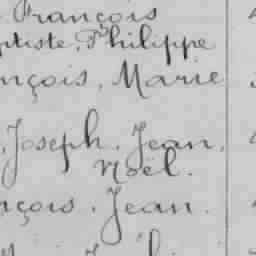 François
ptiste, Philippe
nçois, Marie
, Joseph, Jean,
Noël.
nçois, Jean.